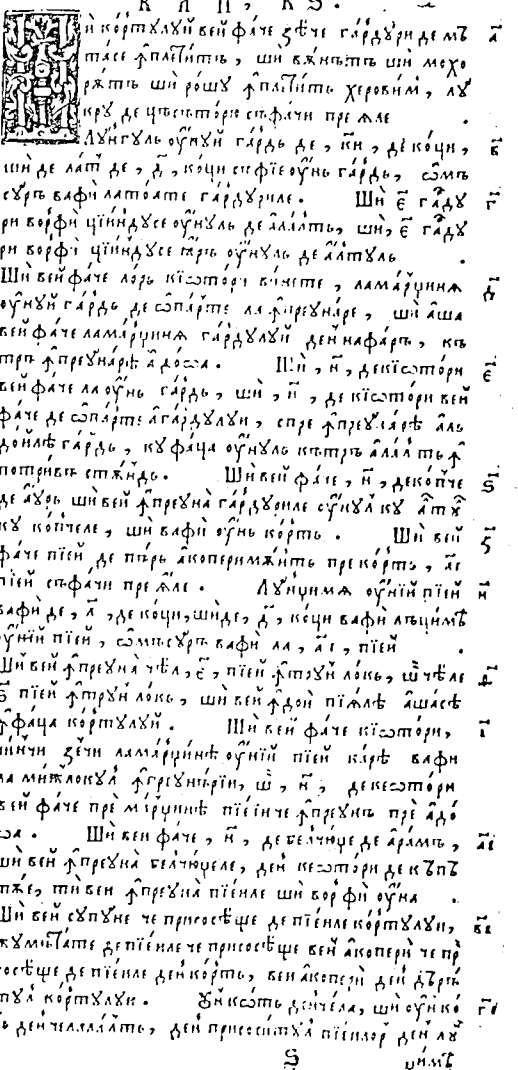 КАП, КЅ.
Ши кортꙋлꙋй вей фаче зѣче гардꙋри де мъ а҃
тасе ꙟплетитъ, ши вънътъ ши мохо
рътъ ши рошꙋ ꙟплетить херовимй, лꙋ
крꙋ де цъсъторю съфачи пре ѧле.
Лꙋнгꙋль ꙋнꙋй гардь де, к҃и, де коци, в҃
ши де лат де, д҃, коци съ фїе ꙋнь гардь, ѡмъ
сꙋръ вафи латоате гардꙋриле. Ши е҃ гардꙋ г҃
ри ворфи цїиндꙋсе ꙋнꙋль де алалть, ши, е҃ гардꙋ
ри ворфи цїиндꙋсе търъ ꙋнꙋль де алтꙋль.
Ши вей фаче лорь кїѡторй вънете, ла марџинѧ д҃
ꙋнꙋй гардь де ѡпарте ла ꙟпреꙋнаре, ши аша
вей фаче ла марџинѧ гардꙋлꙋй ден нафаръ, къ
тръ ꙟпреꙋнарѣ адоѡа. Ши, н҃, де кїѡторй е҃
вей фаче ла ꙋнь гардь, ши, н҃, де кїѡторй вей
фаче де ѡпарте а гардꙋлꙋй, спре ꙟпреꙋнарѣ аль
дойлѣ гардь, кꙋ фаца ꙋнꙋль кътръ алалть ꙟ
потривъ стѫндь. Ши вей фаче, н҃, де копче ѕ҃
де аꙋрь ши вей ꙟпреꙋна гардꙋриле ꙋнꙋл кꙋ алтꙋл
кꙋ копчеле, ши вафи ꙋнь корть. Ши вей з҃
фаче пїей де пърь акоперимѫнть пре корть, а҃і
пїей съфачи пре ѧле. Лꙋнџимѧ ꙋнїй пїей и҃
вафи де, л҃, де коци, ши де, д҃, коци вафи лъцимѣ
ꙋнїй пїей, ѡмъсꙋръ вафи ла, а҃і, пїей.
Ши вей ꙟпреꙋна чѣле, е҃, пїей ꙟтрꙋн локь, ши чѣле ѳ҃
ѕ҃ пїей ꙟтрꙋн локь, ши вей ꙟдой пїѧлѣ ашасѣ
ꙟфаца кортꙋлꙋй. Ши вей фаче кїѡторй, і҃
чинчи зѣчи ла марџинѣ ꙋнїй пїей каре вафи
ла мижлокꙋл ꙟпреꙋнърїи, ши, н҃, де кеѡторй
вей фаче пре марџинѣ пїеїй че ꙟпреꙋнъ пре адо
ѡа. Ши вей фаче, н҃, де белчюџе де арамъ, а҃і
ши вей ꙟпреꙋна белчюџеле, ден кеѡторй де къпъ
тѫе, ши вей ꙟпреꙋна пїеиле ши ворфи ꙋна.
Ши вей сꙋпꙋне че присосѣще де пїеиле кортꙋлꙋй, в҃і
жꙋмътате де пїеиле че присосѣще вей акопери че при
сосѣще де пїеиле ден корть, вей акопери ден дъръ
птꙋл кортꙋлꙋй. Ꙋн кот ден чела, ши ꙋн ко г҃і
ть ден челалалть, ден присоситꙋл пїеилор ден лꙋн
Ѕ џимѣ